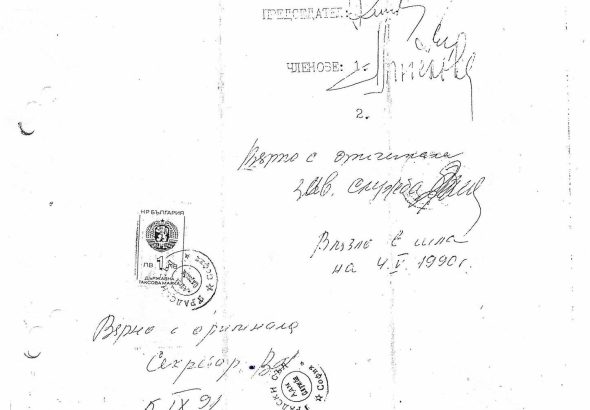 ПРЕДСЕДАТЕЛ:
ЧЛЕНОВЕ: 1.
2.
Вярно с оригинала
зав. служба
Влязло в сила
на 4.V.1990г.
НР БЪЛГАРИЯ
1 ЛВ
ДЪРЖАВНА
ТАКСОВА МАРКА
ГРАДСКИ
София
Вярно с оригинала
Секретар
ГРАДСКИ СЪД
София
5 IX 91